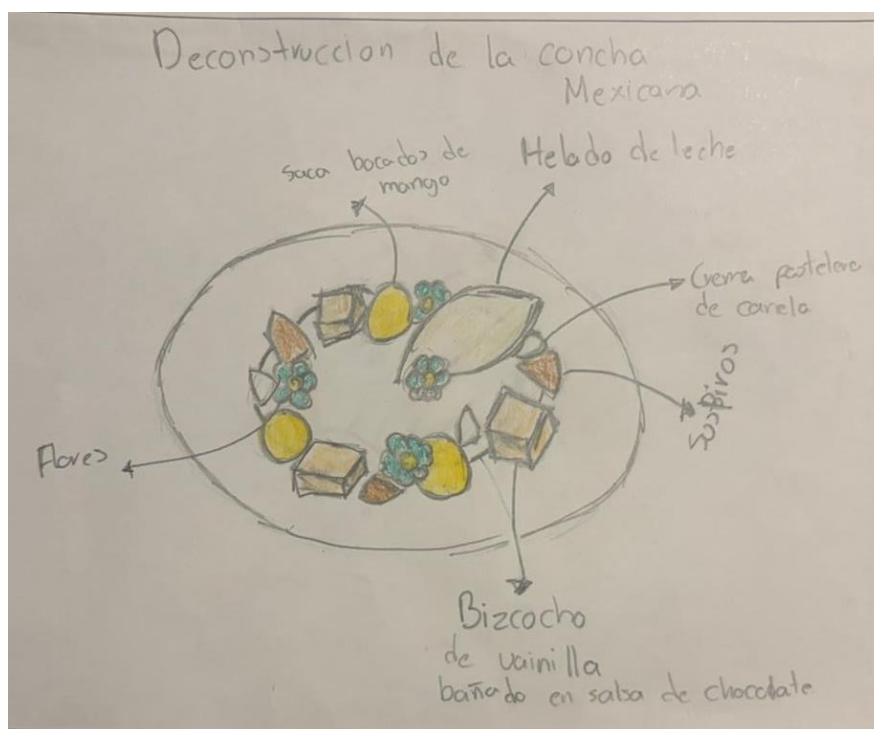 Deconstruccion de la concha
Mexicana
saca bocados de
mango
Helado de leche
Crema pastelera
de canela
Suspiros
Flores
Bizcocho
de vainilla
bañado en salsa de chocolate